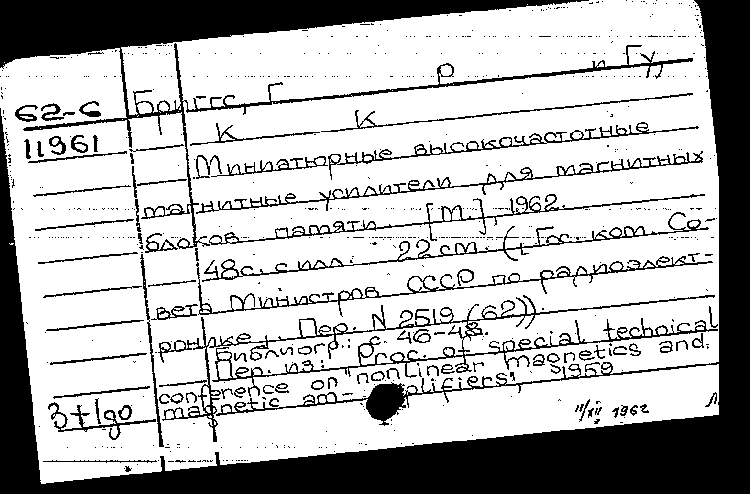 62-6 Бриггс, Г р и Гу,
11961 к к
Миниатюрные высокочастотные
магнитные усилители для магнитных
блоков памяти. [М.], 1962.
48с. с илл. 22 см. (Гос. ком. Со-
вета Министров СССР по радиоэлект-
ронике. Пер. N 2519 (62))
Библиогр.: с. 46-48.
Пер. из: Proc. of special technical
conference on "nonlinear magnetics and
magnetic am- plifiers", 1959
11/XII 1962